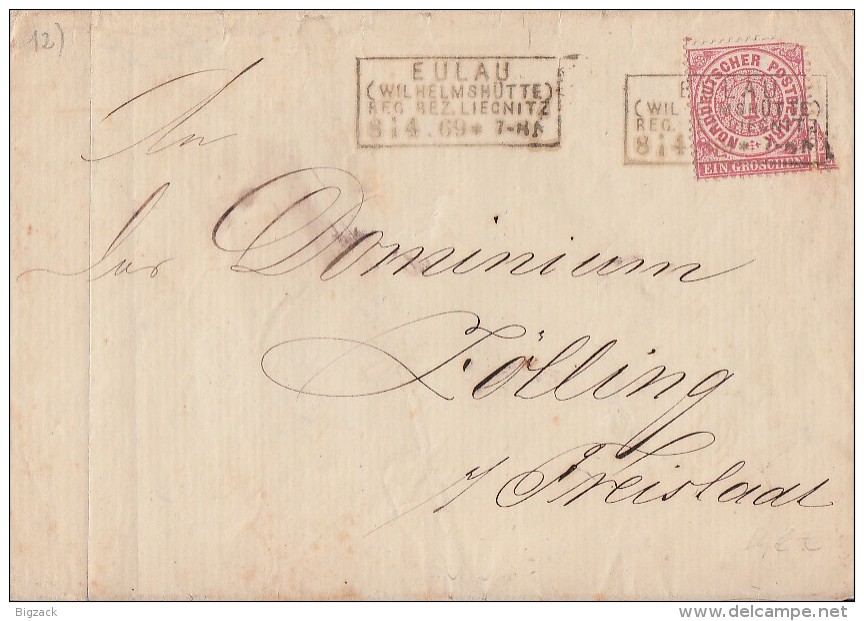 12)
EULAU
(WILHELMSHÜTTE)
REG. BEZ. LIEGNITZ
8 i 4 . 69 * 7-8 A
NORDDEUTSCHER POSTBEZIRK
1
EIN GROSCHEN
E LAU
(WIL MSHÜTTE)
REG. LIEGNITZ
8 i 4 * 7-8 A
An
das Dominium
Zölling
b/ Freistadt
Bigzack
www.delcampe.net